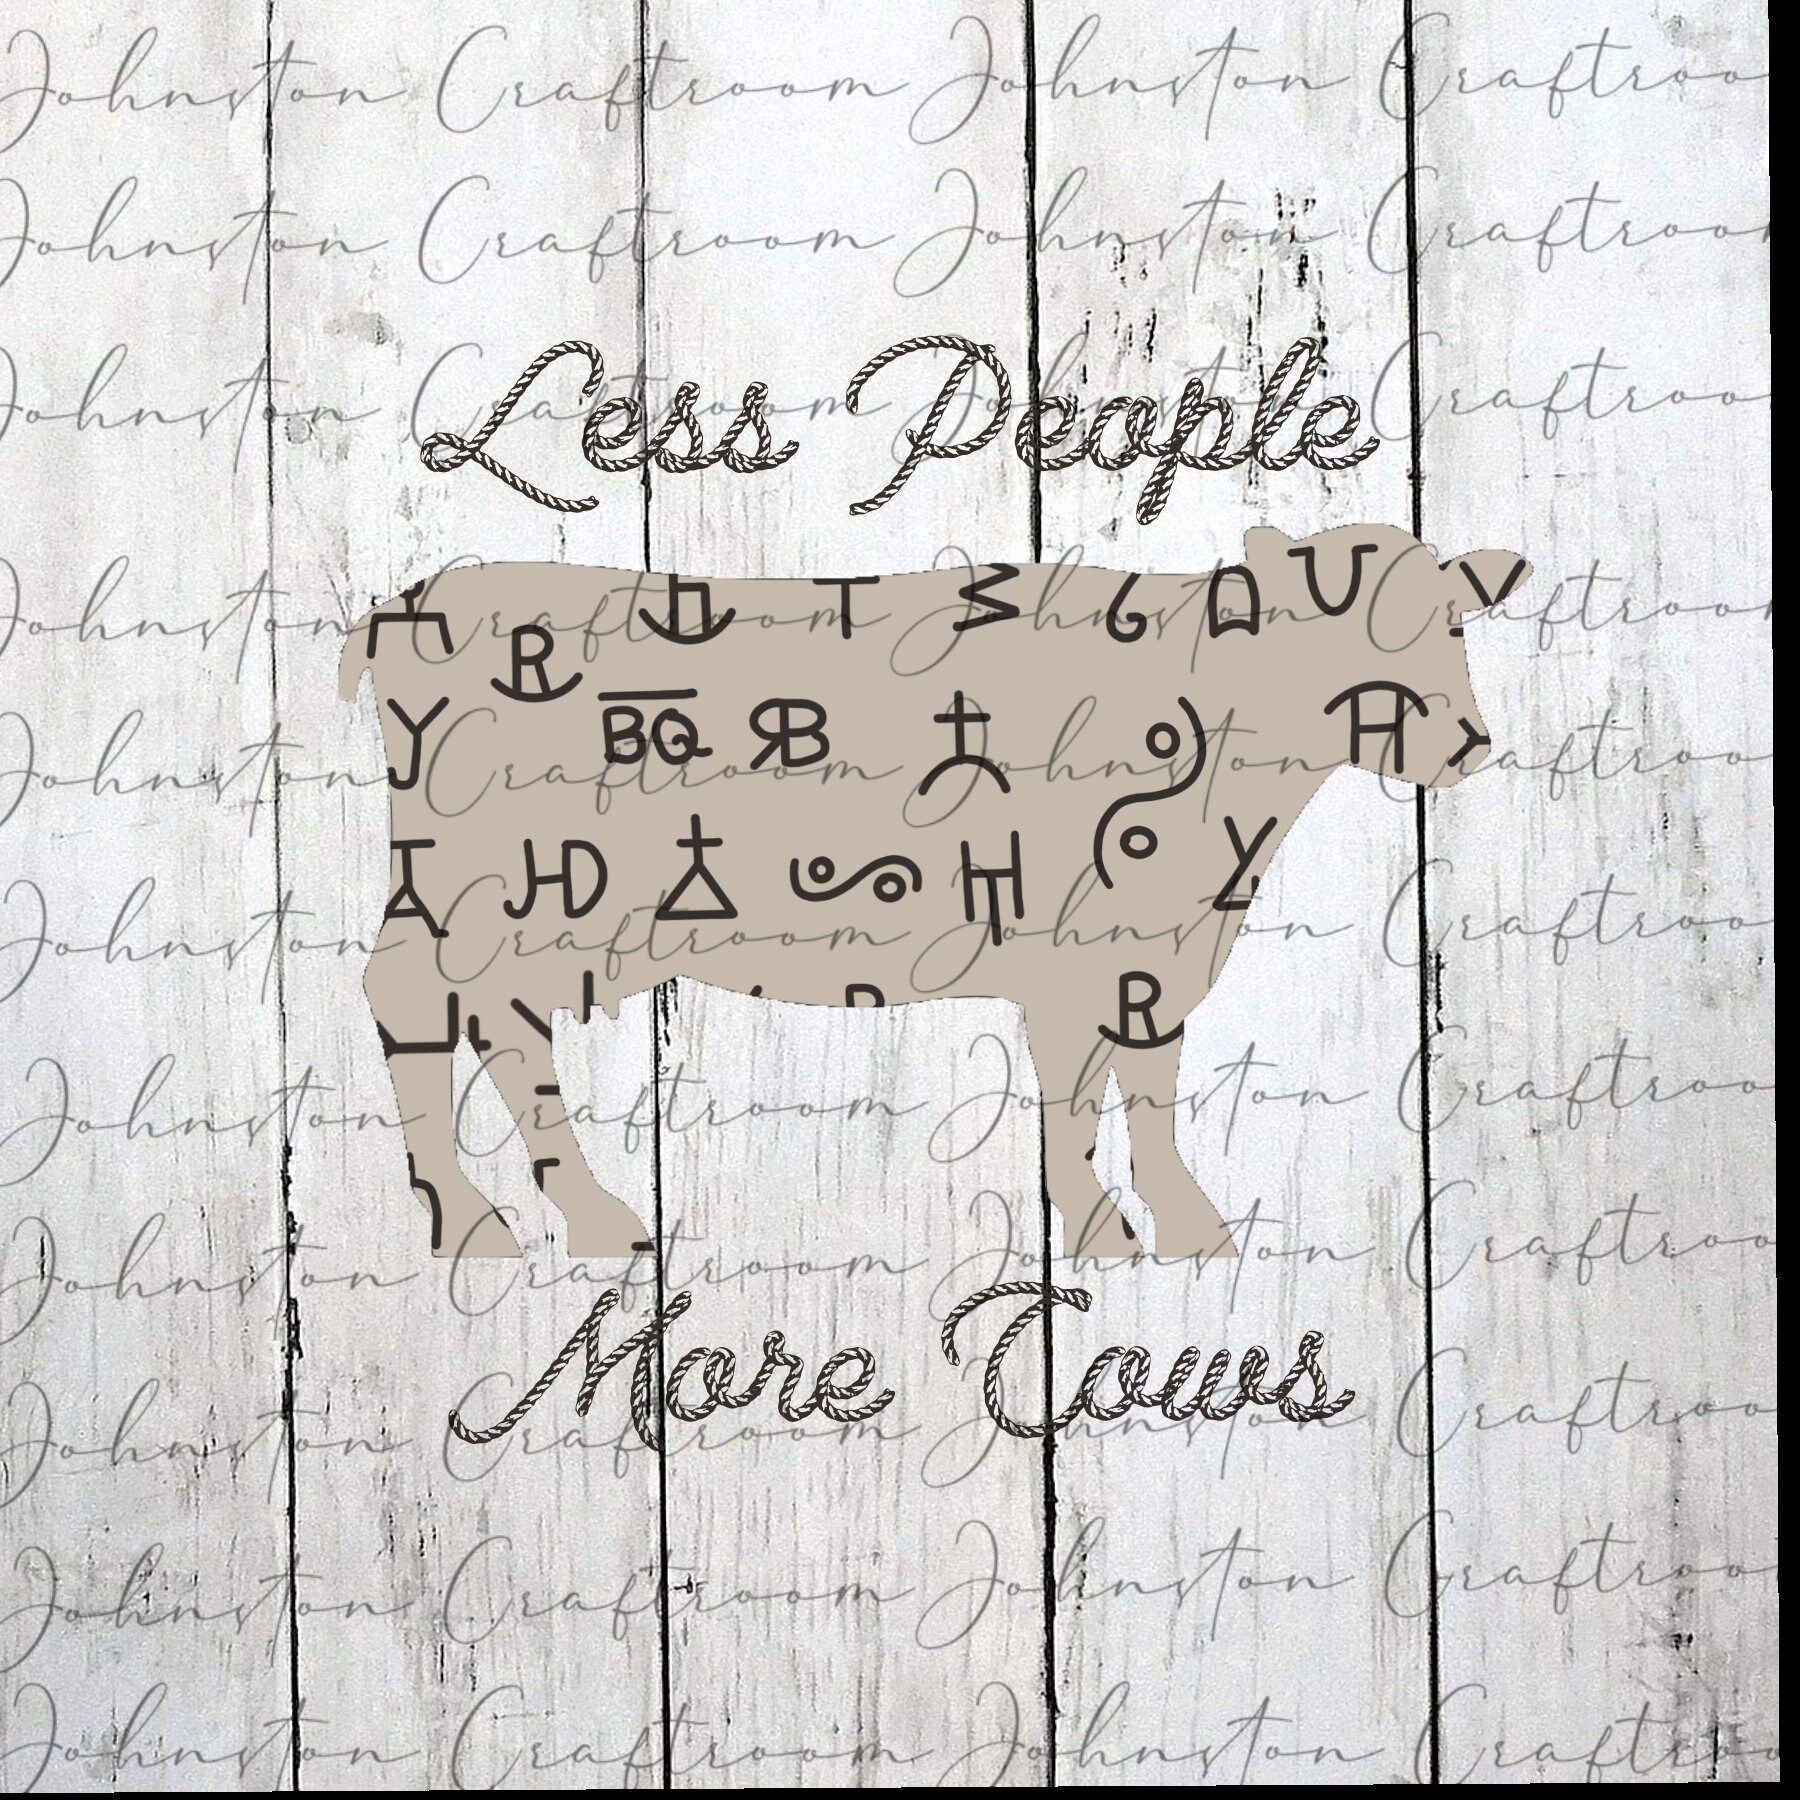 Johnston Craftroom Johnston Craftroo
Johnston Craftroom Johnston Craftroom
Johnston Craftroom Johnston Craftroo
Less People
Johnston Craftroom Johnston Craftroo
R
BQ RB
H
Johnston Craftroom Johnston Craftroo
JD
Johnston Craftroom Johnston Craftroo
R
Johnston Craftroom Johnston Craftroo
Johnston Craftroom Johnston Craftroo
More Cows
Johnston Craftroom Johnston Craftroo
Johnston Craftroom Johnston Craftroo
Johnston Craftroom Johnston Craftroo